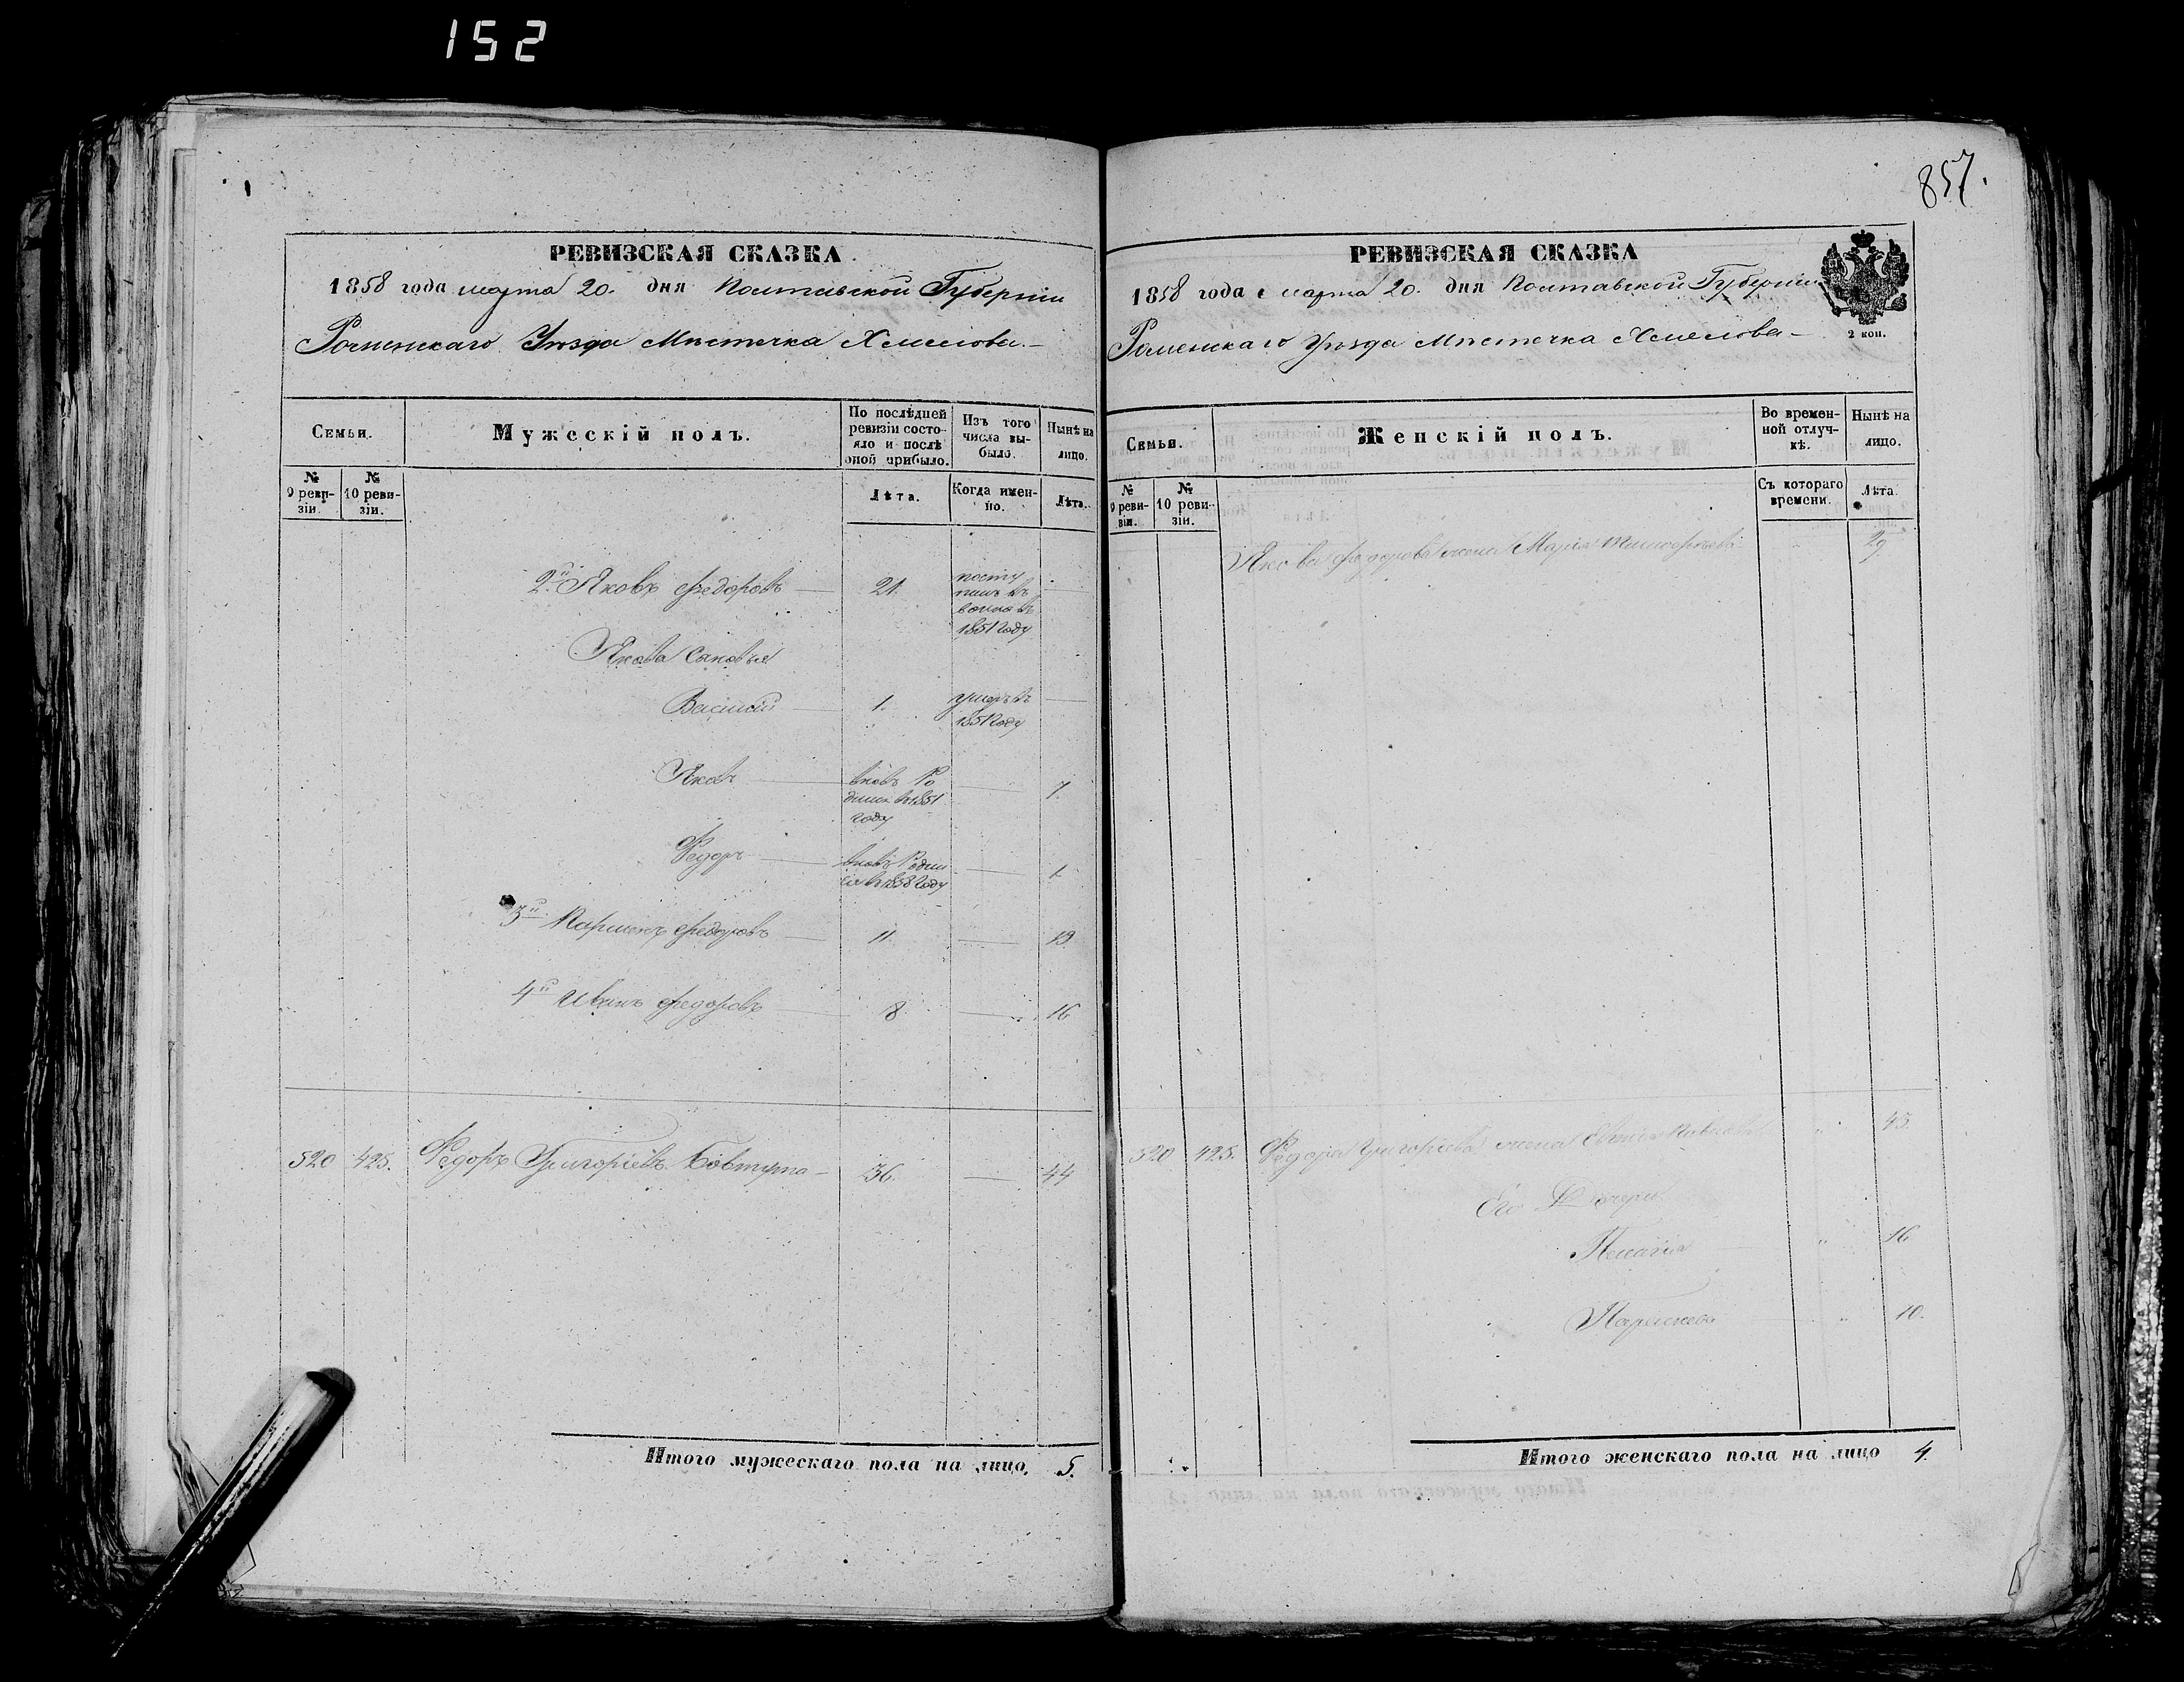 152
857.
РЕВИЗСКАЯ СКАЗКА
1858 года марта 20. дня Полтавской Губерніи
Роменскаго Уѣзда Мѣстечка Хмелова
Семьи.
Мужескій полъ.
По послѣдней ревизіи состояло и послѣ оной прибыло.
Изъ того числа выбыло.
Нынѣ на лицо.
№ 9 ревизіи.
№ 10 ревизіи.
Лѣта.
Когда именно.
Лѣта.
2й Яковъ Федоровъ 21.
1851 году
Якова Сыновья
Василий 1. умеръ въ
1851 году
Яковъ вновь Ро
дился въ 1851 7.
году
Федоръ вновь Родил
ся въ 1858 году 1
3й Пармен Федоровъ 11 19
4й Иванъ Федоровъ 8 16
520 425. Федоръ Григоріевъ Бовтута 36. 44
Итого мужескаго пола на лицо. 5.
РЕВИЗСКАЯ СКАЗКА
1858 года марта 20. дня Полтавской Губерніи
Роменскаго Уѣзда Мѣстечка Хмелова
2 коп.
Семьи.
Женскій полъ.
Во временной отлучкѣ.
Нынѣ на лицо.
№ 9 ревизіи.
№ 10 ревизіи.
Съ котораго времени.
Лѣта.
Якова Федорова жена Марія Тимофѣева 29
520 425. Федора Григоріева жена 43.
Его Дочери
Пелагия 16
Параскева 10.
Итого женскаго пола на лицо 4.